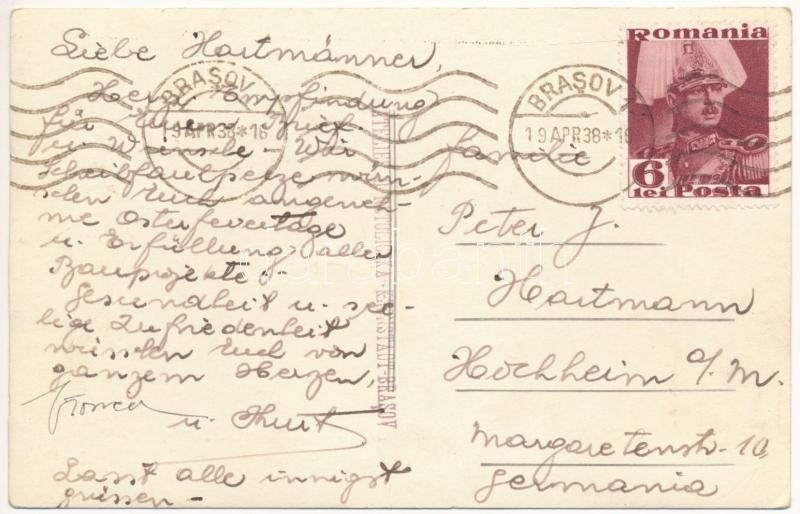 Liebe Hartmänner,
Herzl. Empfindung
für Euren Brief
u. Wünsche - Wir
wün-
schen Euch angeneh-
me Osterfeiertage
u. Erfüllung aller
Bauprojekte &
Gesundheit u. see-
lige Zufriedenheit
wünschen Euch von
ganzem Herzen,
u. Kurt
Lasst alle innigst
grüssen -
BRAȘOV
19 APR 38*16
KRONSTADT-BRAȘOV
BRAȘOV 1
19 APR 38*16
Romania
6 lei Posta
Familie
Peter J.
Hartmann
Hochheim a/M.
Margaretenstr. 10
Germania
darabanth